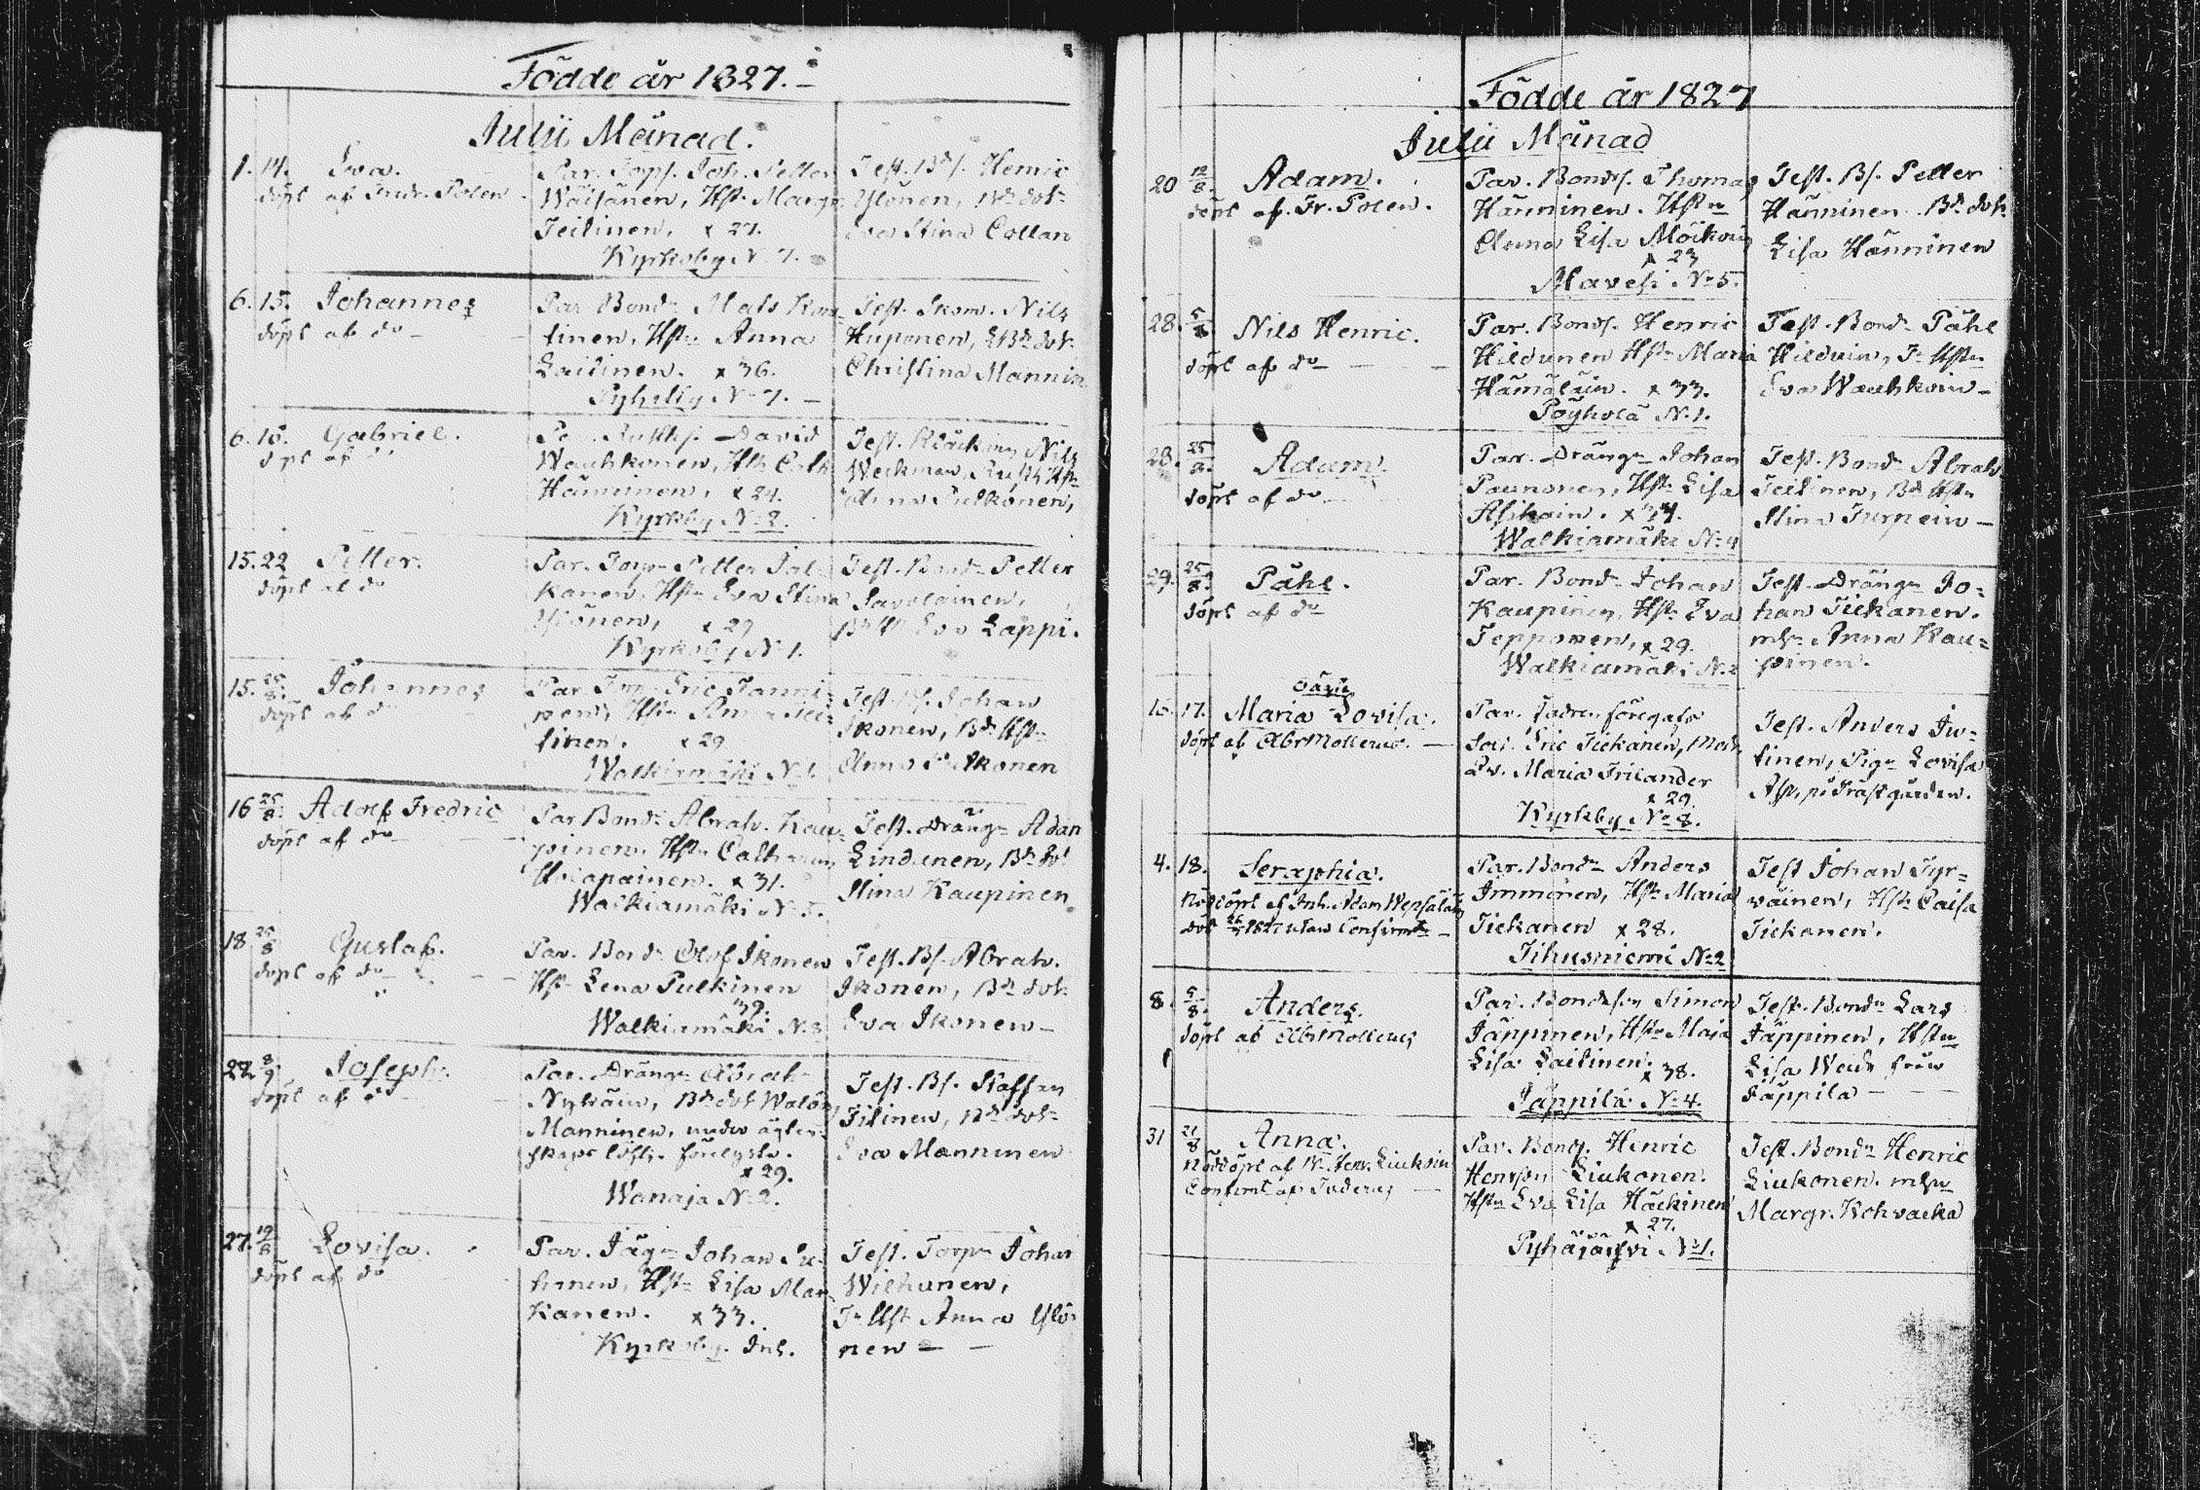 Födde år 1827.
Julii Månad.
1. 14. Eva.
döpt af Fredr. Polen
Par. Torps. Joh. Petter
Wäisänen, Hst. Margr.
Teitinen, x 27.
Kyrkoby N 7.
Test. Bds. Henric
Ylönen, Bd. dot.
Eva Stina Collan
6. 15. Johannes
döpt af do
Par. Bond. Mats
tinen, Hst. Anna
Laitinen. x 36.
N 7.
Test. Nils
Huponen, dot.
Christina Mannin
6. 15. Gabriel.
döpt af do
Par. David
Wauhkonen, Hst. Cath
Hänninen, x 24.
Kyrkby N. 2.
Test. Nils
Weckman, Hst.
Pulkonen,
15. 22 Petter.
döpt af do
Par. Torp. Petter Jal-
kanen, Hst. Eva Stina
Ikonen, x 29
Kyrkoby N. 1.
Test. Bond. Petter
Savolainen,
Eva Lappi.
15. 25/8. Johannes
döpt af do
Par. Torp. Eric Tanni-
nen, Hst. Tei-
tinen. x 29
Walkiamäki N. 1.
Test. Bs. Johan
Ikonen, Bd. Hst.
Anna Ikonen
16 25/8. Adolf Fredric
döpt af do
Par Bond. Abrah. Kau-
pinen, Hst. Catharina
x 31.
Walkiamäki N. 5.
Test. Dräng. Adam
Lindunen, Bd. dot
Stina Kaupinen.
18 25/8 Gustaf.
döpt af do
Par. Bond. Olof Ikonen
Hst. Lena Pulkinen
39.
Walkiamäki N. 3
Test. Bs. Abrah.
Ikonen, Bd. dot.
Eva Ikonen
22. 8/9. Joseph.
döpt af do
Par. Dräng. Abrah.
Nykäin, Bd. dot. Walbor
Manninen, under ägten-
skaps löfte. förelyste.
x 29.
Wanaja N. 2.
Test. Bs. Staffan
Titinen, Bd. dot.
Eva Manninen
27. 19/8 Lovisa.
döpt af do
Par. Jäg. Johan Pu-
hinen, Hst. Lisa Man-
kanen. x 33.
Kyrkoby. Inh.
Test. Torp. Johan
Wilhunen,
T. Hst. Anna Ylö-
nen
Födde år 1827
Julii Månad
20 12/8. Adam.
döpt af. Fr. Polen.
Par. Bonds. Thomas
Hänninen. Hstu
Anna Lisa Möikoin
x 23
Mavesi No 5.
Test. Bs. Petter
Hänninen. Bd. dot.
Lisa Hänninen
28. 5/8. Nils Henric.
döpt af do
Par. Bonds. Henric
Hildunen Hst. Maria
Hämäläin. x 33.
Pöyhölä N. 1.
Test. Bond. Påhl
Hilduin, T. Hst.
Eva Wauhkoin
28. 25/8. Adam.
döpt af do
Par. Dräng. Johan
Paunonen, Hst. Lisa
Asikain. x 34.
Walkiamäki N. 4
Test. Bond. Abrah
Teitinen, Bd. Hst.
Stina Turpein
29. 25/8. Påhl.
döpt af do
Par. Bond. Johan
Kaupinen, Hst. Eva
Tepponen, x 29.
Walkiamäki N. 2
Test. Dräng. Jo-
han Tiekanen.
mh. Anna Kau-
pinen.
oäkta
16. 17. Maria Lovisa.
döpt af Abr Mollerus.
Par. fadren föregafs
Eric Tiekanen, Modr.
Qv. Maria Frilander
x 29.
Kyrkby No 8.
Test. Anders Iw-
tinen, Pig. Lovisa
på Prästgården.
4. 18. Seraphia.
nöddöpt af Inh. Adam Wepsäläin
död
Par. Bond. Anders
Immonen, Hst. Maria
Tiekanen x 28.
Tihusniemi No 2
Test Johan Tyr-
väinen, Hst. Caisa
Tiekanen.
8. 5/8. Anders.
döpt af Abr Mollerus
Par. Bondeson Simon
Jäppinen, Hst. Maja
Lisa Laitinen. x 38.
Jäppilä No 4.
Test. Bond. Lars
Jäppinen, Hstu
Lisa från
Jäppilä
31 21/8 Anna.
nöddöpt af Henr. Liukoin
Confirmt af Inderus
Par. Bonds. Henric
Henrson Liukonen.
Hstu Eva Lisa Häckinen
x 27.
Pyhäjärfvi No 1.
Test. Bond. Henric
Liukonen. mhu
Margr. Kohvacka